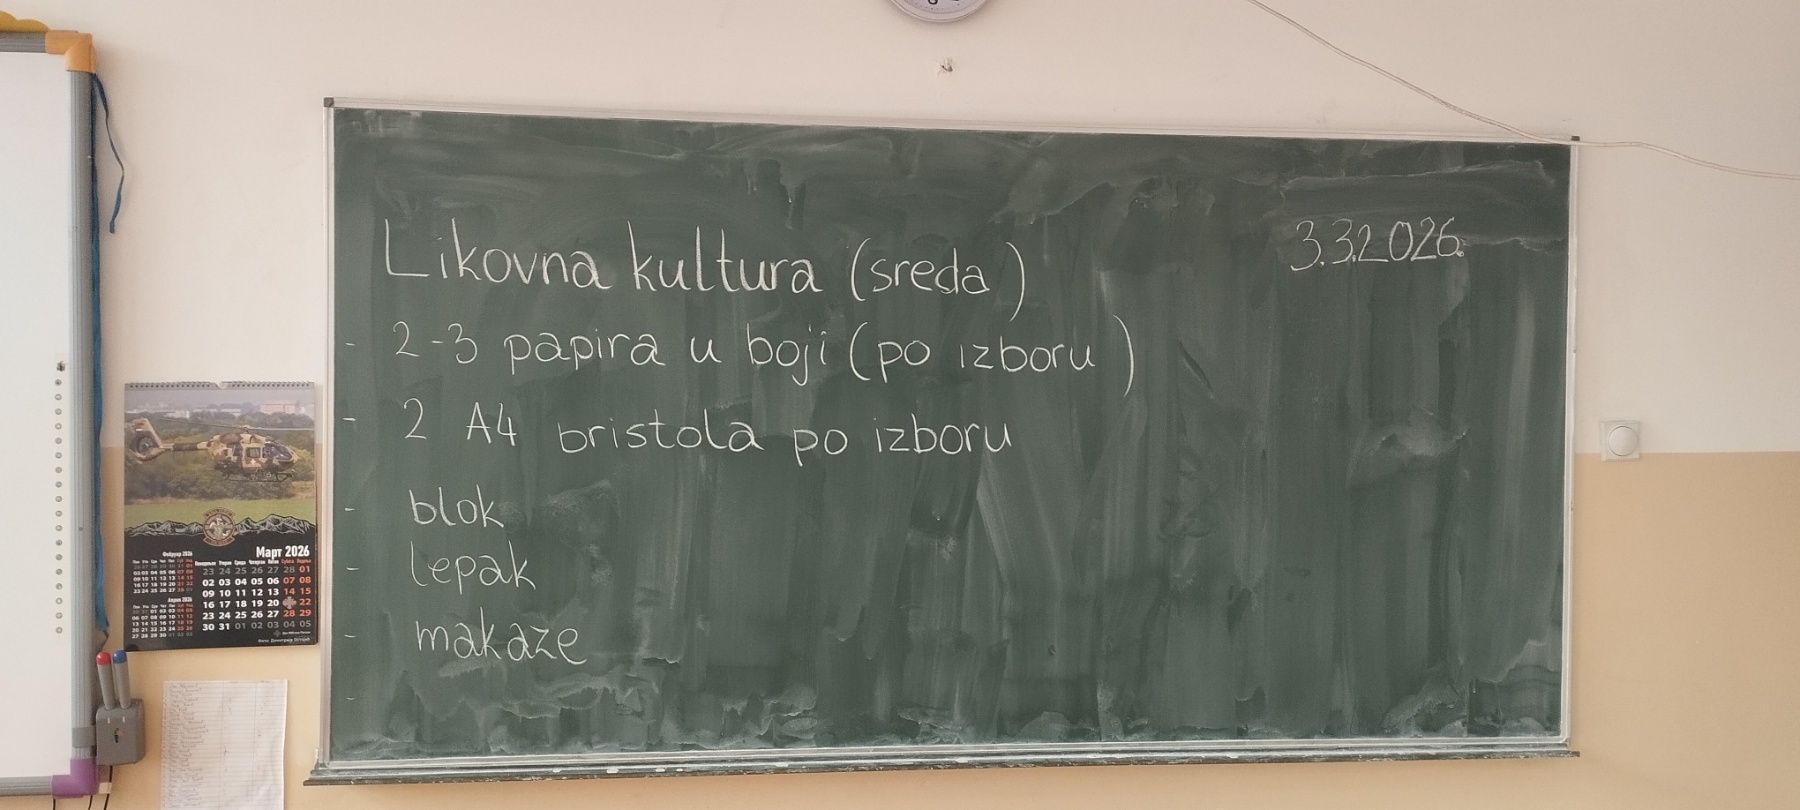 Likovna kultura (sreda)
3.3.2026.
- 2-3 papira u boji (po izboru)
- 2 A4 bristola po izboru
- blok
- lepak
- makaze
-
Фебруар 2026
Март 2026
Понедељак Уторак Среда Четвртак Петак Субота Недеља
23 24 25 26 27 28 01
02 03 04 05 06 07 08
09 10 11 12 13 14 15
16 17 18 19 20 22
23 24 25 26 27 28 29
30 31 01 02 03 04 05
Април 2026